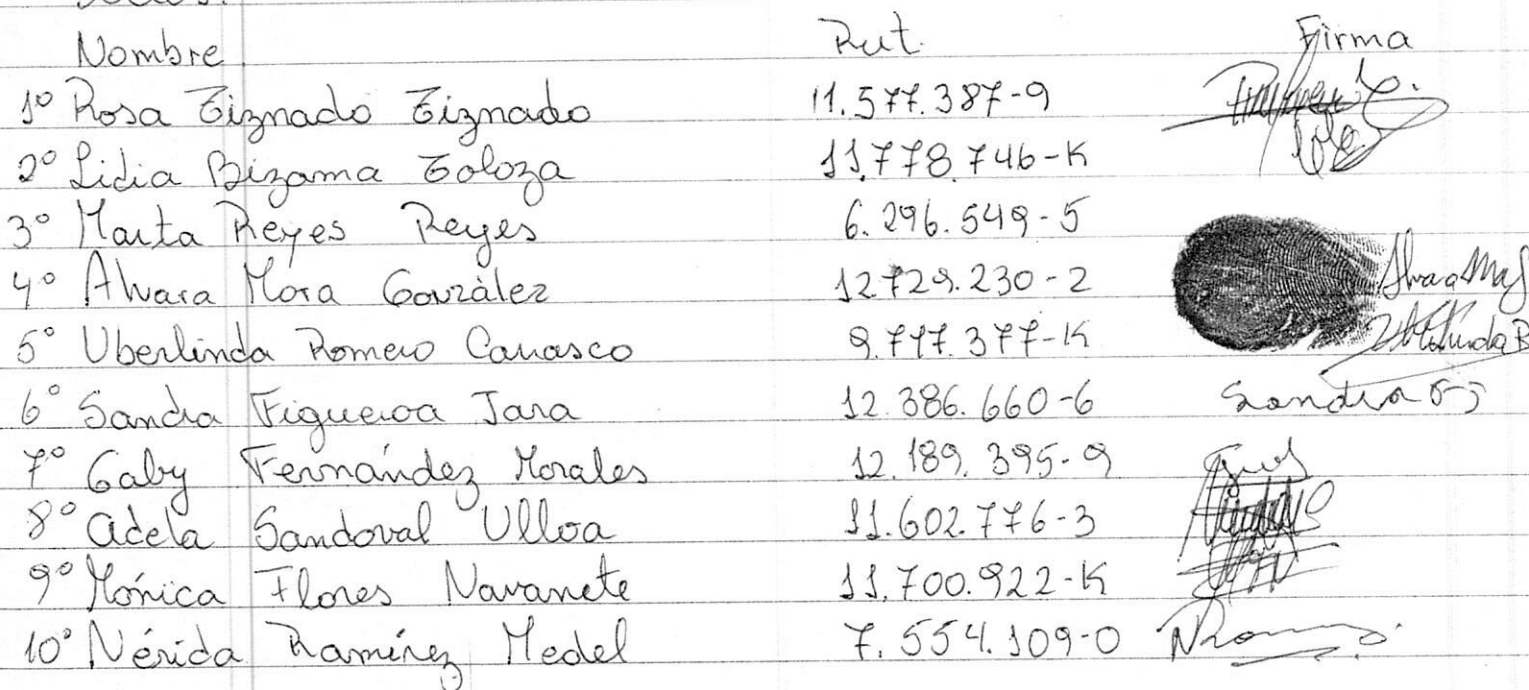 Nombre Rut. Firma
1º Rosa Tiznado Tiznado 11.577.387-9
2º Lidia Bizama Toloza 11.778.746-K
3º Marta Reyes Reyes 6.296.549-5
4º Alvara Mora González 12.729.230-2
5º Uberlinda Romero Carrasco 9.747.377-K
6º Sandra Figueroa Jara 12.386.660-6 Sandra F J
7º Gaby Fernández Morales 12.189.395-9
8º Adela Sandoval Ulloa 11.602.776-3
9º Mónica Flores Navarrete 11.700.922-K
10º Nérida Ramírez Medel 7.554.109-0